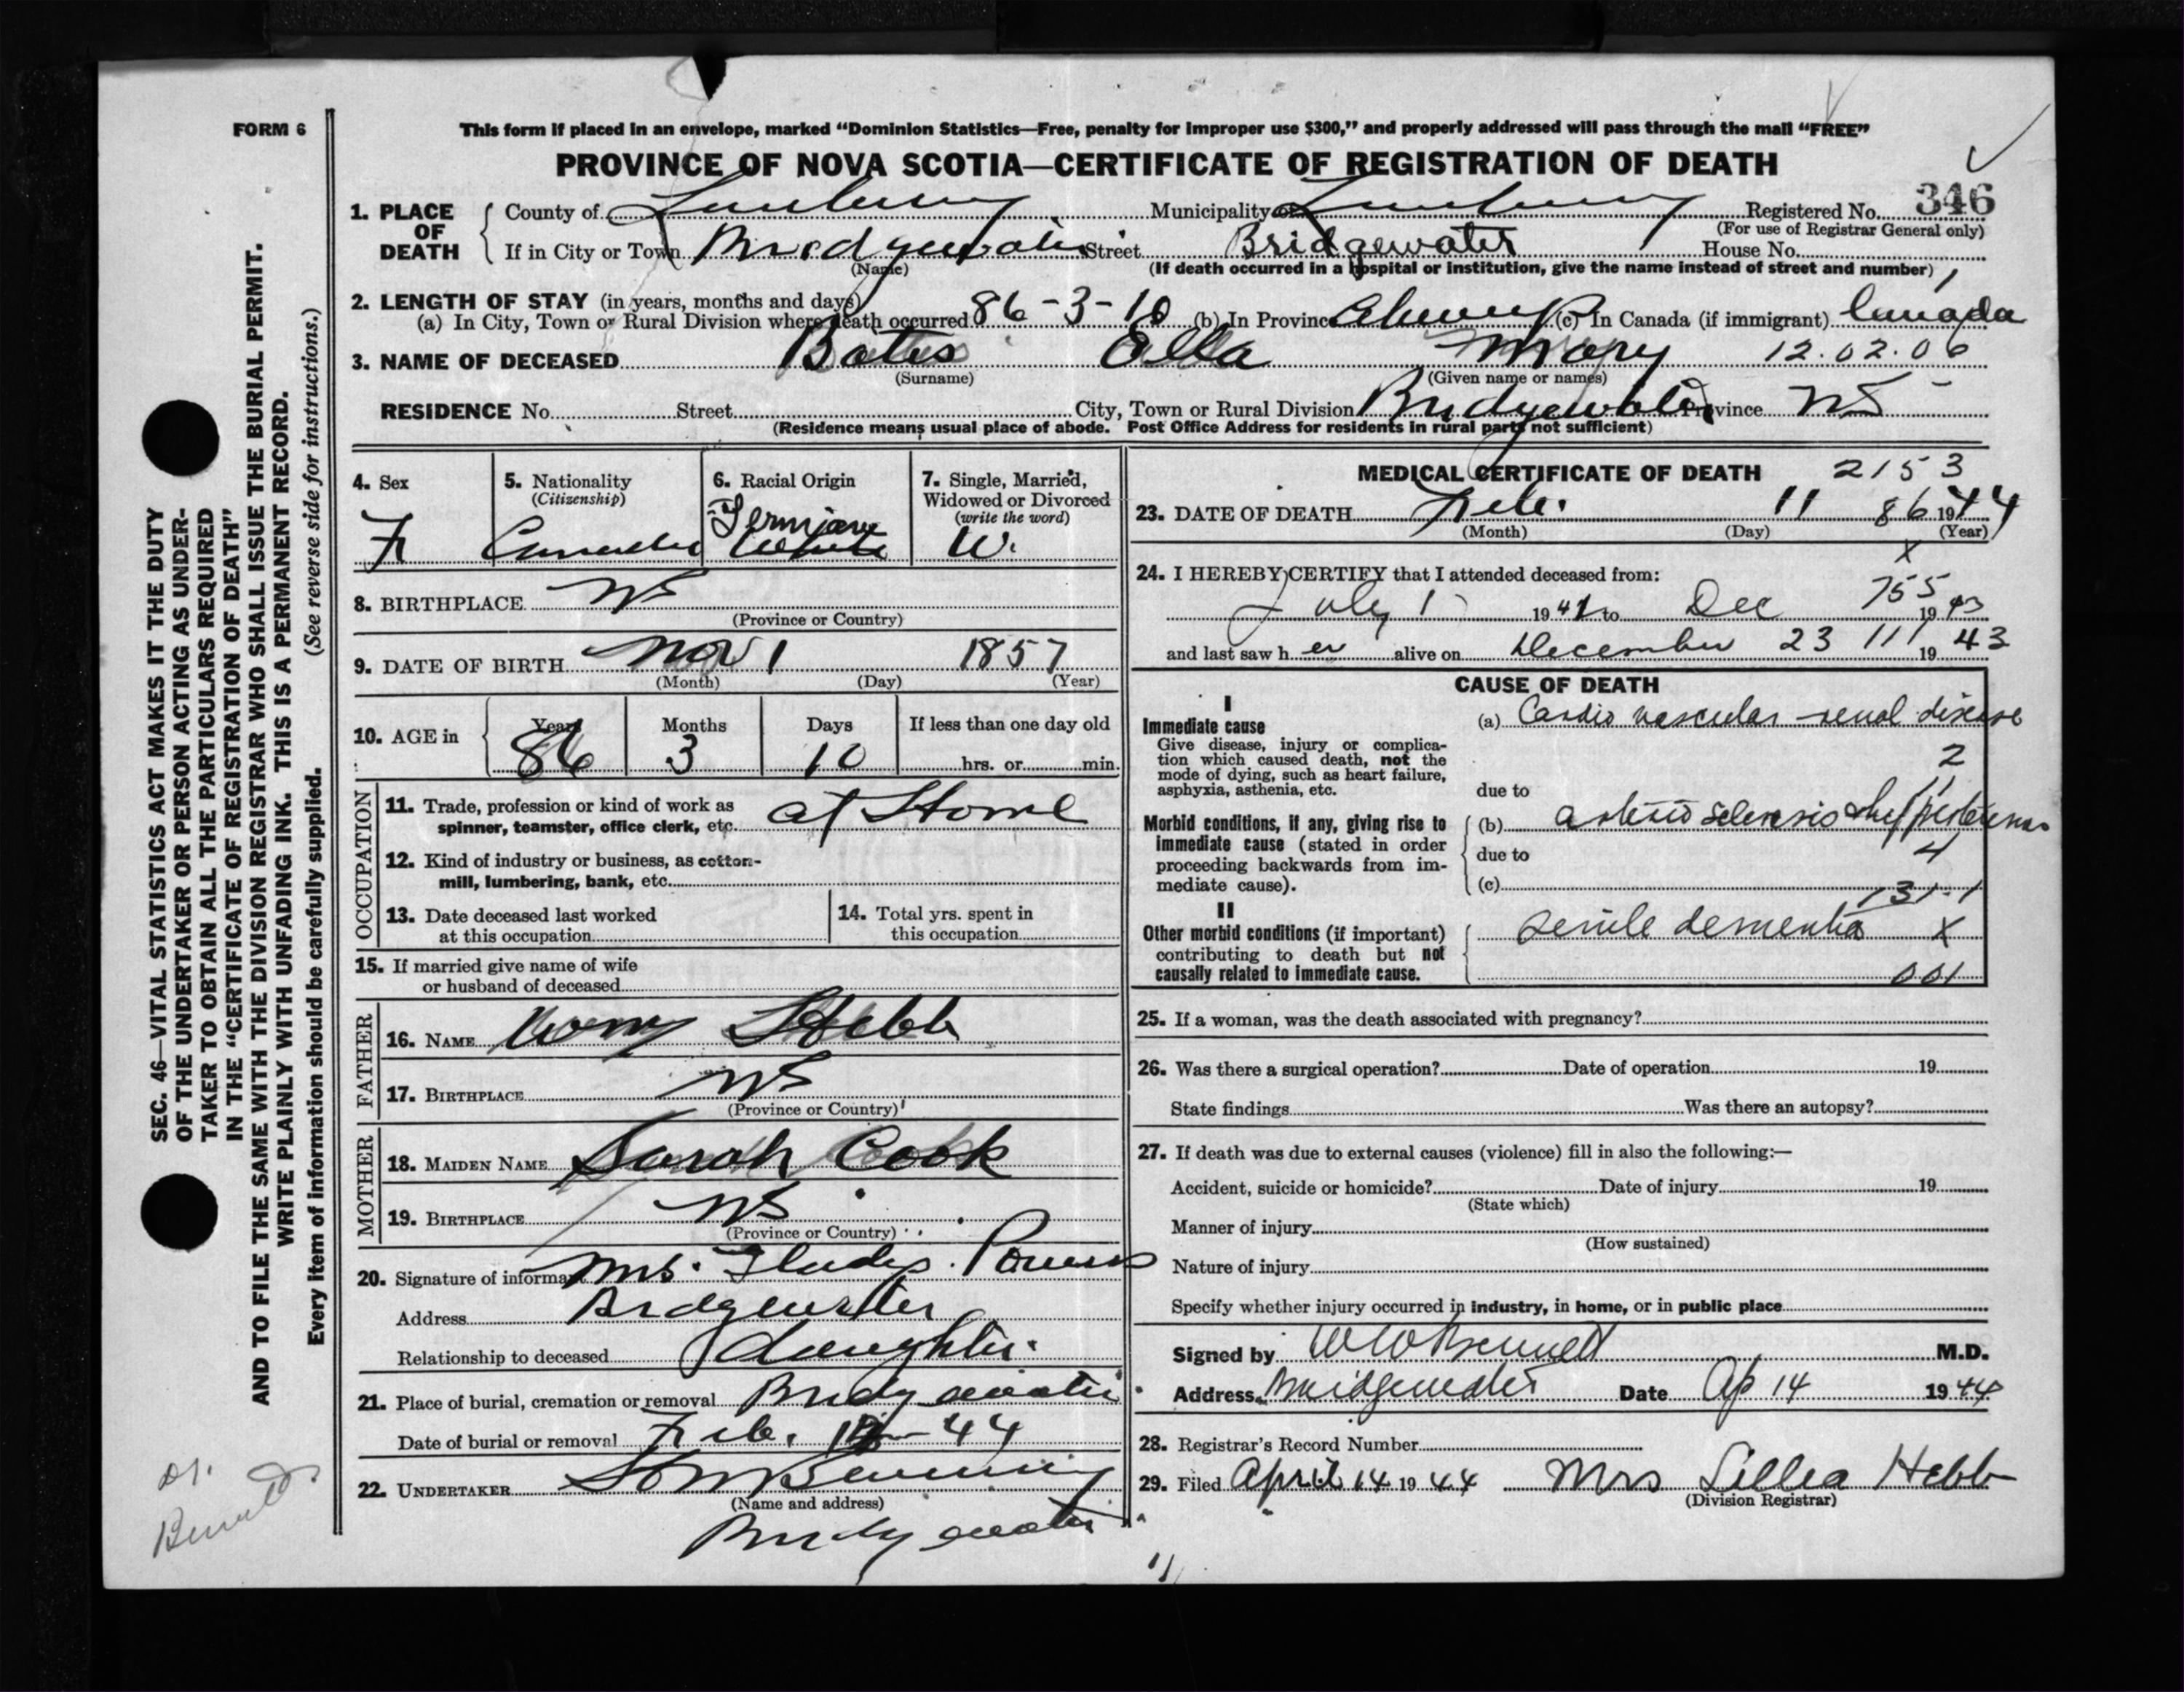 FORM 6
This form if placed in an envelope, marked “Dominion Statistics—Free, penalty for improper use $300,” and properly addressed will pass through the mail “FREE”
PROVINCE OF NOVA SCOTIA—CERTIFICATE OF REGISTRATION OF DEATH
346
1. PLACE OF DEATH County of Lunenburg Municipality of Lunenburg Registered No.
(For use of Registrar General only)
If in City or Town Bridgewater Street Bridgewater House No.
(Name) (If death occurred in a hospital or institution, give the name instead of street and number)
2. LENGTH OF STAY (in years, months and days)
(a) In City, Town or Rural Division where death occurred 86-3-10 (b) In Province Always (c) In Canada (if immigrant) Canada
3. NAME OF DECEASED Bates Ella Mary 12.02.06
(Surname) (Given name or names)
RESIDENCE No. Street City, Town or Rural Division Bridgewater Province NS
(Residence means usual place of abode. Post Office Address for residents in rural parts not sufficient)
4. Sex
F
5. Nationality
(Citizenship)
6. Racial Origin
German
White
7. Single, Married,
Widowed or Divorced
(write the word)
W.
8. BIRTHPLACE NS
(Province or Country)
9. DATE OF BIRTH Nov 1 1857
(Month) (Day) (Year)
10. AGE in Years Months Days If less than one day old
86 3 10 hrs. or min.
OCCUPATION
11. Trade, profession or kind of work as
spinner, teamster, office clerk, etc. at Home
12. Kind of industry or business, as cotton-
mill, lumbering, bank, etc.
13. Date deceased last worked
at this occupation
14. Total yrs. spent in
this occupation
15. If married give name of wife
or husband of deceased
FATHER
16. NAME Hebb
17. BIRTHPLACE NS
(Province or Country)
MOTHER
18. MAIDEN NAME Sarah Cook
19. BIRTHPLACE NS
(Province or Country)
20. Signature of informant Mrs. Gladys Powers
Address Bridgewater
Relationship to deceased daughter.
21. Place of burial, cremation or removal Bridgewater
Date of burial or removal Feb. - 44
22. UNDERTAKER
(Name and address)
Bridgewater
MEDICAL CERTIFICATE OF DEATH 2153
23. DATE OF DEATH Feb. 11 86 1944
(Month) (Day) (Year)
X
24. I HEREBY CERTIFY that I attended deceased from:
755
July 1 1941 to Dec 1943
and last saw her alive on December 23 111 1943
CAUSE OF DEATH
I
Immediate cause
Give disease, injury or complica-
tion which caused death, not the
mode of dying, such as heart failure,
asphyxia, asthenia, etc.
(a) Cardio vascular-renal disease
2
11
due to
Morbid conditions, if any, giving rise to
immediate cause (stated in order
proceeding backwards from im-
mediate cause).
(b) arterio sclerosis & hypertension
due to 4
(c) 131-1
II
Other morbid conditions (if important)
contributing to death but not
causally related to immediate cause.
senile dementia X
001
25. If a woman, was the death associated with pregnancy?
26. Was there a surgical operation? Date of operation 19
State findings Was there an autopsy?
27. If death was due to external causes (violence) fill in also the following:—
Accident, suicide or homicide? Date of injury 19
(State which)
Manner of injury
(How sustained)
Nature of injury
Specify whether injury occurred in industry, in home, or in public place
Signed by W W Bennett M.D.
Address Bridgewater Date Ap 14 1944
28. Registrar's Record Number
29. Filed April 14 1944 Mrs Lillea Hebb
(Division Registrar)
SEC. 46—VITAL STATISTICS ACT MAKES IT THE DUTY
OF THE UNDERTAKER OR PERSON ACTING AS UNDER-
TAKER TO OBTAIN ALL THE PARTICULARS REQUIRED
IN THE “CERTIFICATE OF REGISTRATION OF DEATH”
AND TO FILE THE SAME WITH THE DIVISION REGISTRAR WHO SHALL ISSUE THE BURIAL PERMIT.
WRITE PLAINLY WITH UNFADING INK. THIS IS A PERMANENT RECORD.
Every item of information should be carefully supplied. (See reverse side for instructions.)
Dr.
Bennett